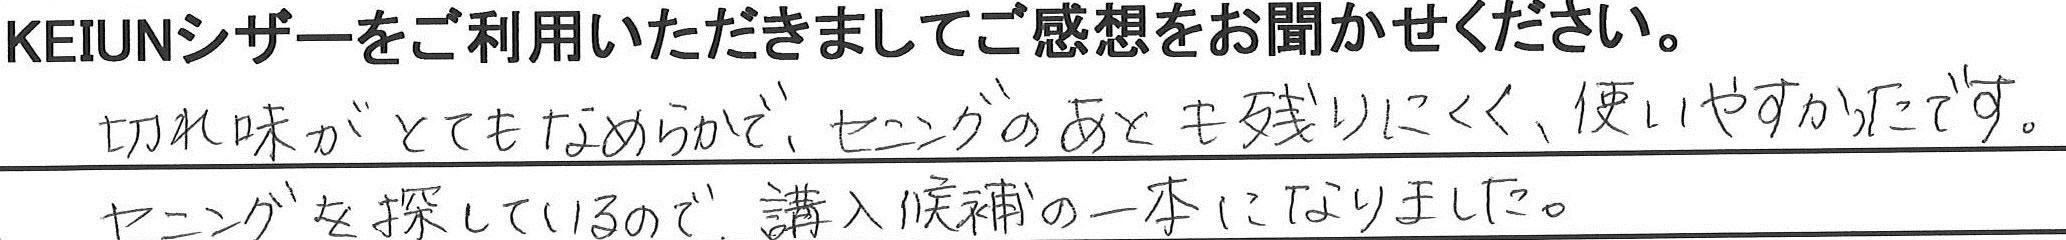 KEIUNシザーをご利用いただきましてご感想をお聞かせください。
切れ味がとてもなめらかで、セニングのあとも残りにくく、使いやすかったです。
セニングを探しているので、講入候補の一本になりました。